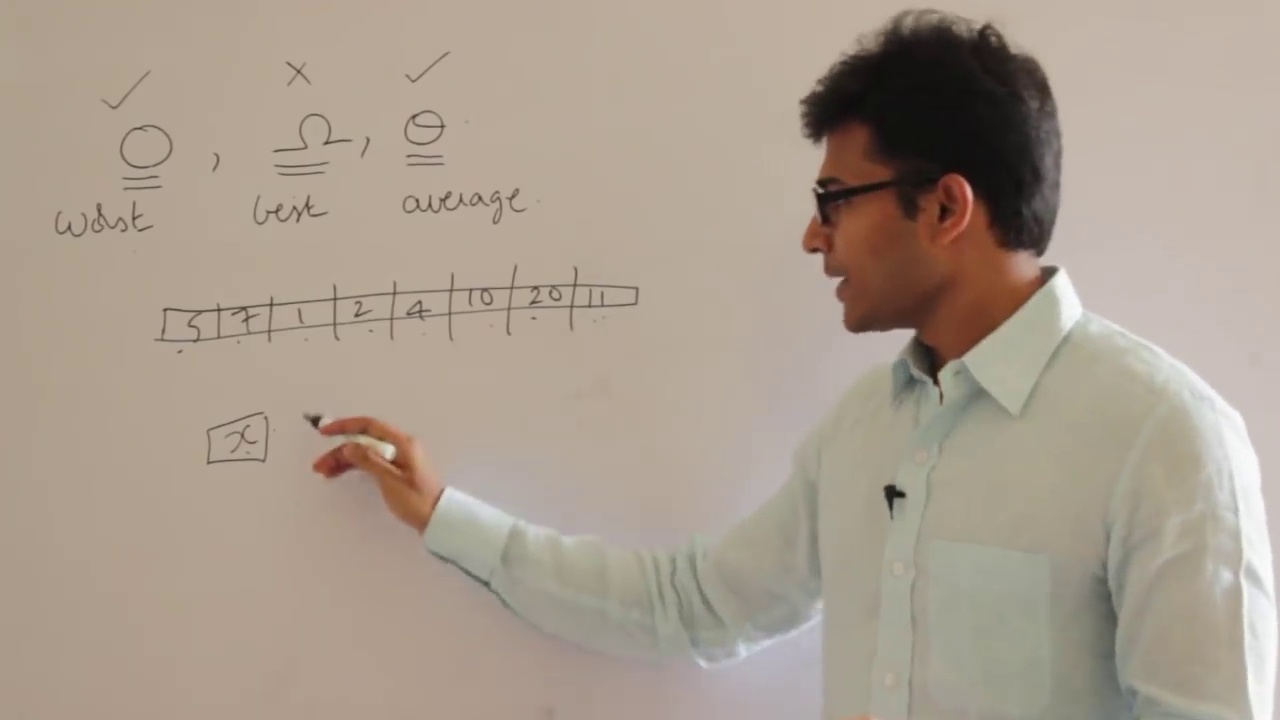 ✓ × ✓
O , Ω , Θ
worst best average
5 7 1 2 4 10 20 11
x